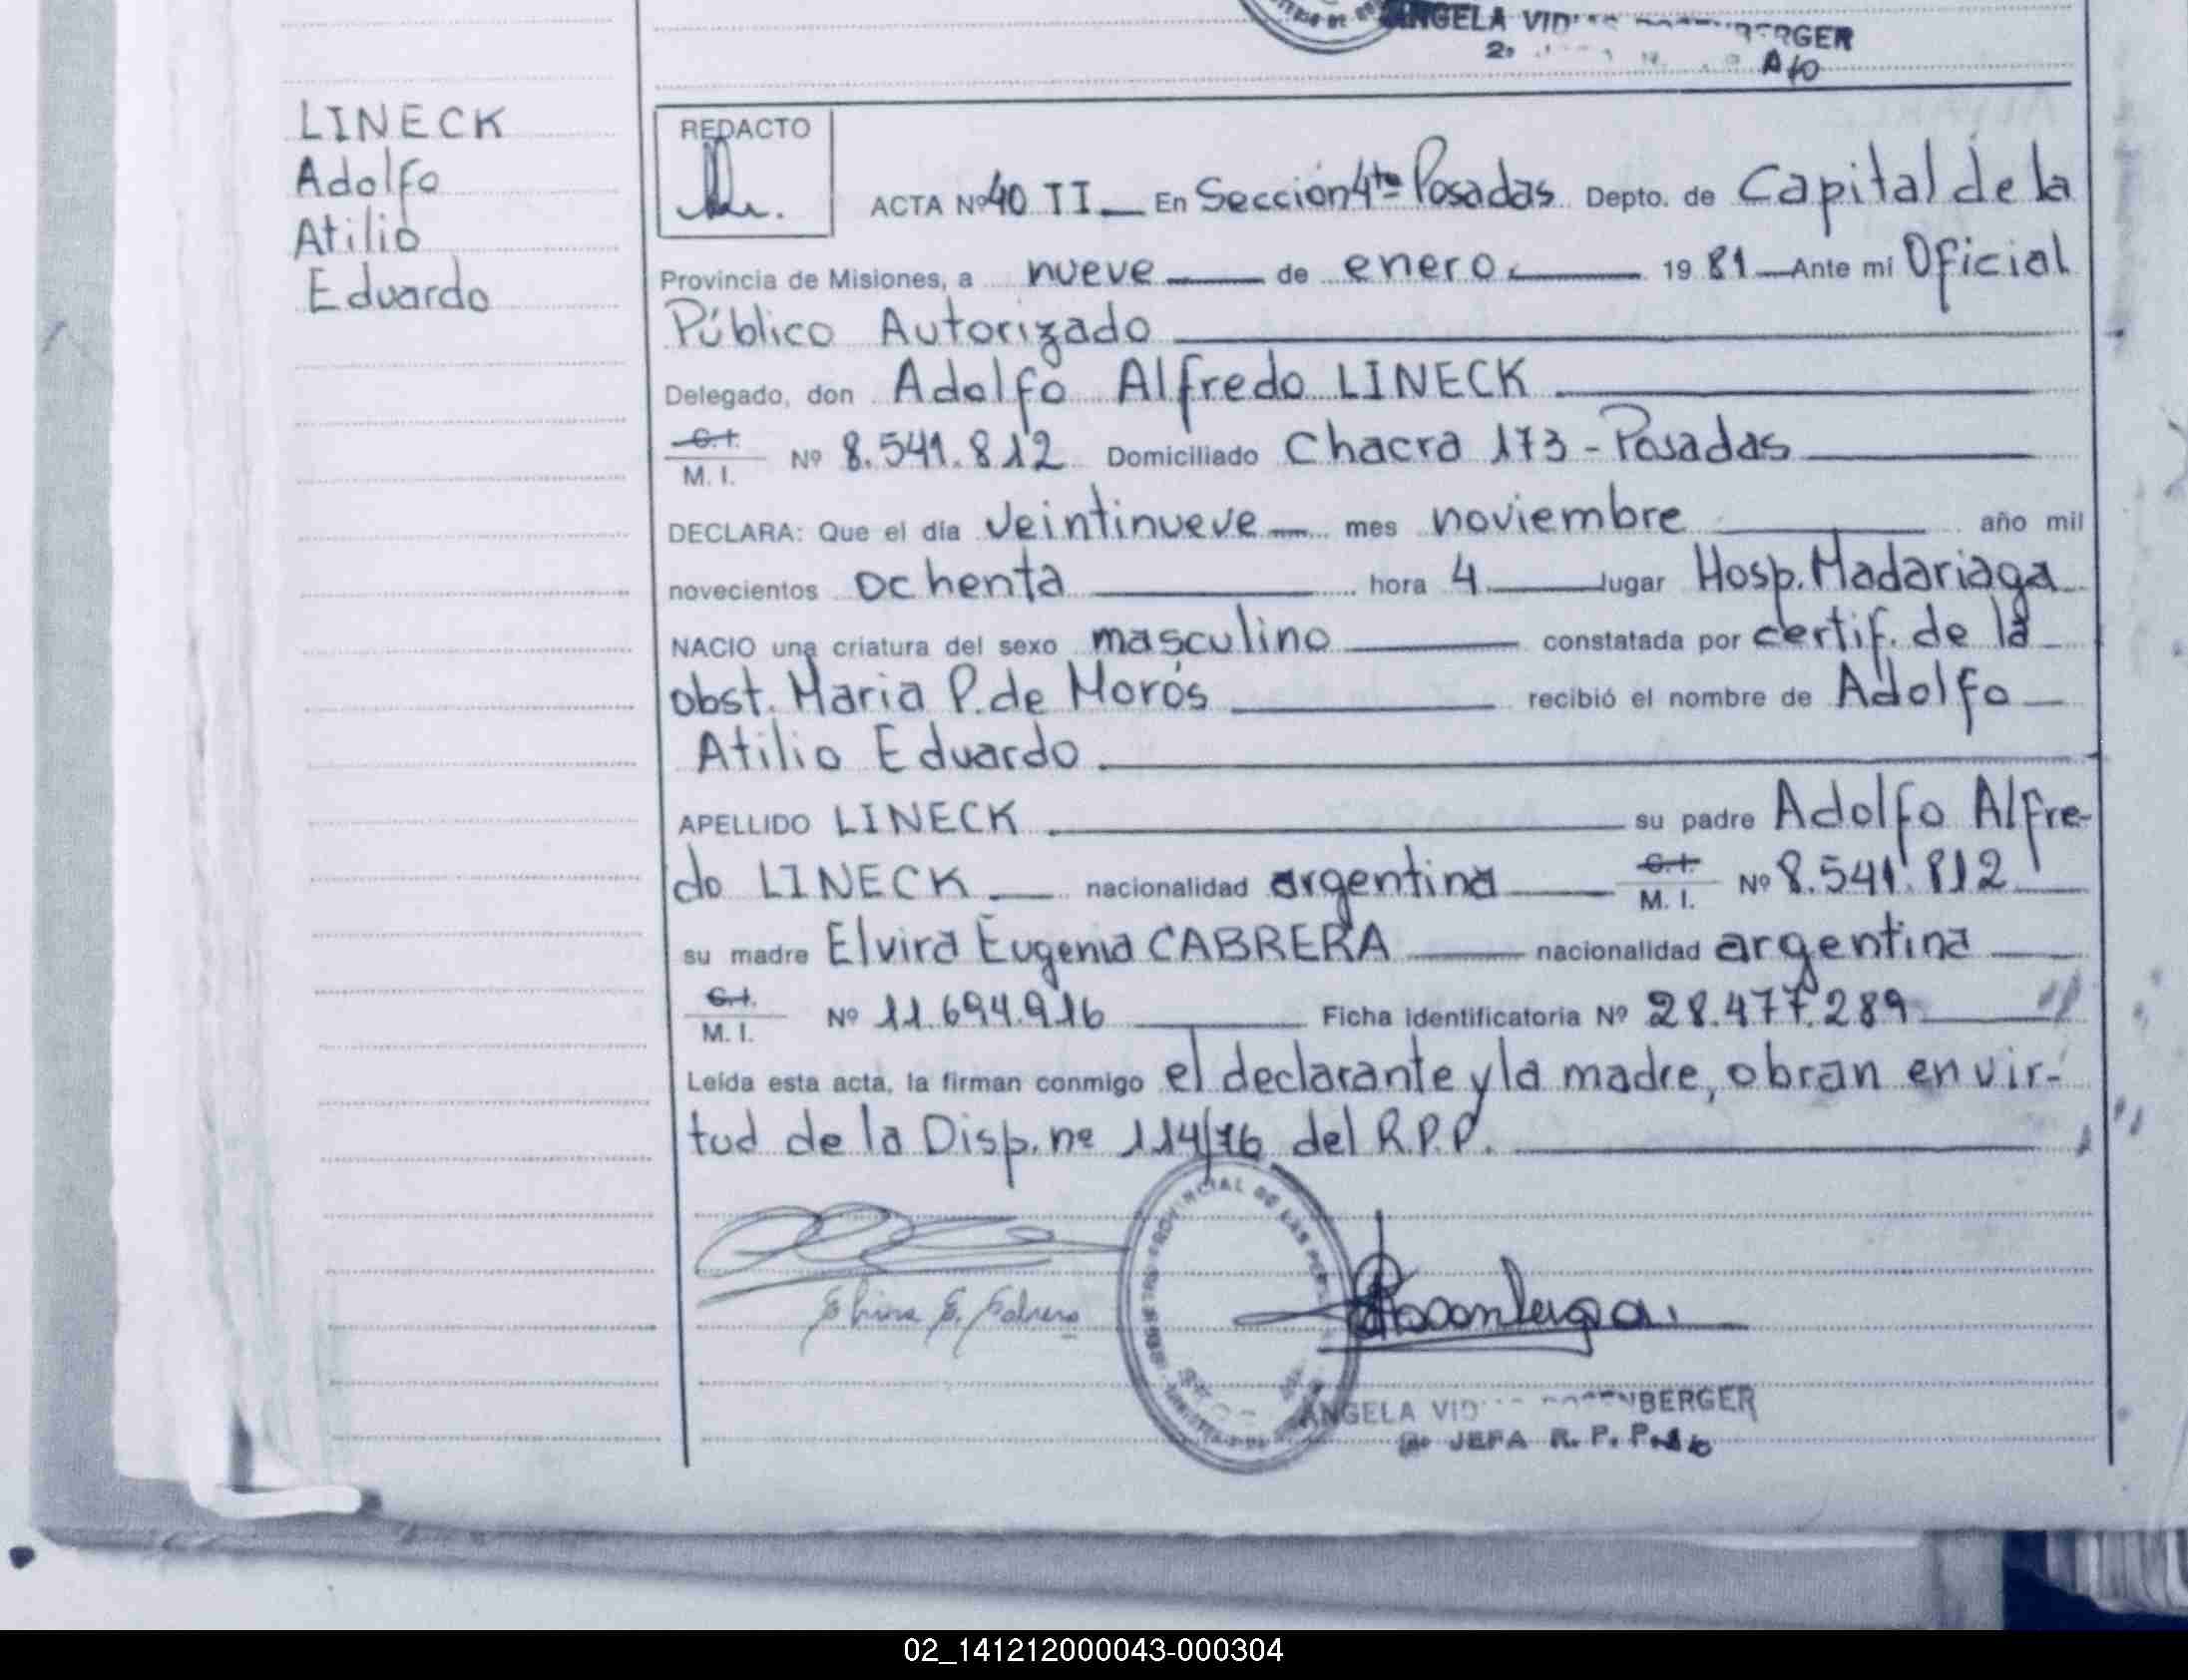 ANGELA
BERGER
LINECK
Adolfo
Atilio
Eduardo
REDACTO
ACTA Nº 40 II — En Sección 4ta Posadas Depto. de Capital de la
Provincia de Misiones, a nueve de enero 1981 Ante mi Oficial
Público Autorizado
Delegado, don Adolfo Alfredo LINECK
C.I. / M. I. Nº 8.541.812 Domiciliado Chacra 173 - Posadas
DECLARA: Que el día veintinueve mes noviembre año mil
novecientos ochenta hora 4 lugar Hosp. Madariaga
NACIO una criatura del sexo masculino constatada por certif. de la
obst. Maria P. de Morós recibió el nombre de Adolfo
Atilio Eduardo
APELLIDO LINECK su padre Adolfo Alfre-
do LINECK nacionalidad argentina C.I. / M. I. Nº 8.541.812
su madre Elvira Eugenia CABRERA nacionalidad argentina
C.I. / M. I. Nº 11.694.916 Ficha identificatoria Nº 28.477.289
Leída esta acta, la firman conmigo el declarante y la madre, obran en vir-
tud de la Disp. nº 114/76 del R.P.P.
Elvira E. Cabrera
PROVINCIAL DE LAS
ANGELA BERGER
JEFA R. P. P.
02_141212000043-000304